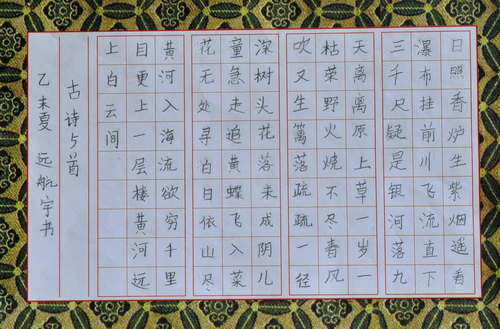 日照香炉生紫烟遥看
瀑布挂前川飞流直下
三千尺疑是银河落九
天离离原上草一岁一
枯荣野火烧不尽春风
吹又生篱落疏疏一径
深树头花落未成阴儿
童急走追黄蝶飞入菜
花无处寻白日依山尽
黄河入海流欲穷千里
目更上一层楼黄河远
上白云间
古诗五首
乙未夏 远航宇书